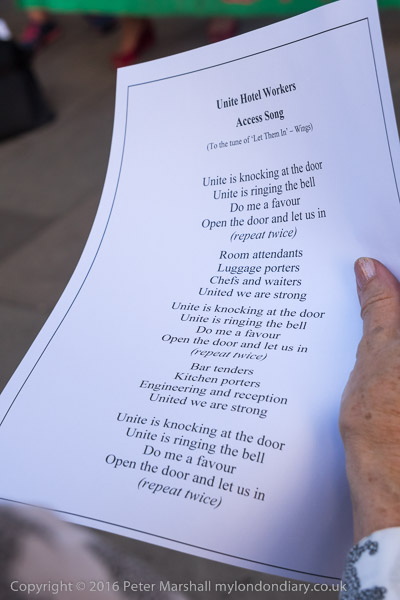 Unite Hotel Workers
Access Song
(To the tune of 'Let Them In' – Wings)
Unite is knocking at the door
Unite is ringing the bell
Do me a favour
Open the door and let us in
(repeat twice)
Room attendants
Luggage porters
Chefs and waiters
United we are strong
Unite is knocking at the door
Unite is ringing the bell
Do me a favour
Open the door and let us in
(repeat twice)
Bar tenders
Kitchen porters
Engineering and reception
United we are strong
Unite is knocking at the door
Unite is ringing the bell
Do me a favour
Open the door and let us in
(repeat twice)
Copyright © 2016 Peter Marshall mylondondiary.co.uk